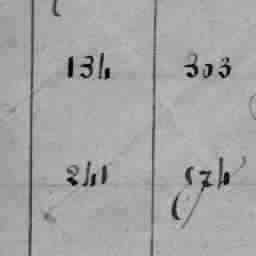 134 303
241 574